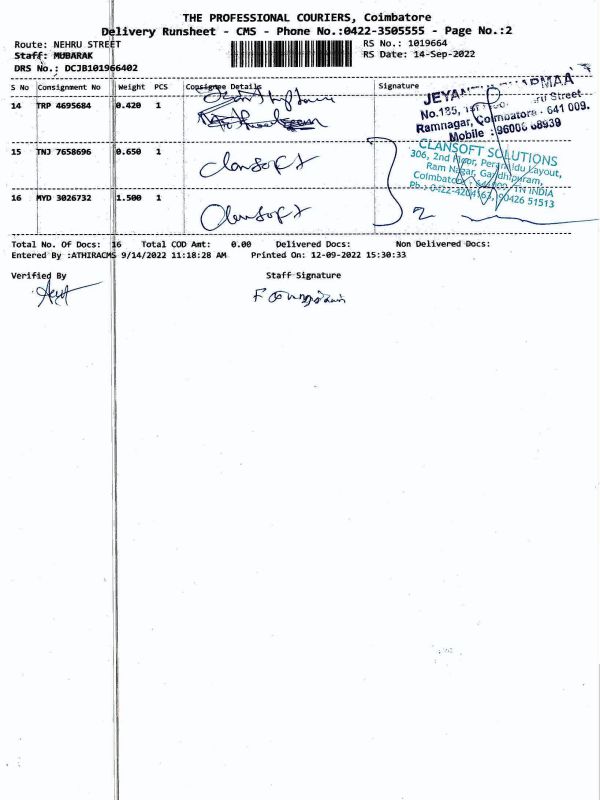 THE PROFESSIONAL COURIERS, Coimbatore
Delivery Runsheet - CMS - Phone No.:0422-3505555 - Page No.:2
Route: NEHRU STREET
RS No.: 1019664
Staff: MUBARAK
RS Date: 14-Sep-2022
DRS No.: DCJB101966402
S No Consignment No Weight PCS Consignee Details Signature
14 TRP 4695684 0.420 1
No.185, Street
Ramnagar, Coimbatore - 641 009.
Mobile :
15 TNJ 7658696 0.650 1 Clansoft
CLANSOFT SOLUTIONS
306, 2nd Floor, Layout,
Ram Nagar, Gandhipuram,
Coimbatore TN INDIA
Ph.: 0422-4204163, 90426 51513
16 MYD 3026732 1.500 1 Clansoft
2
Total No. Of Docs: 16 Total COD Amt: 0.00 Delivered Docs: Non Delivered Docs:
Entered By :ATHIRACMS 9/14/2022 11:18:28 AM Printed On: 12-09-2022 15:30:33
Verified By Staff Signature